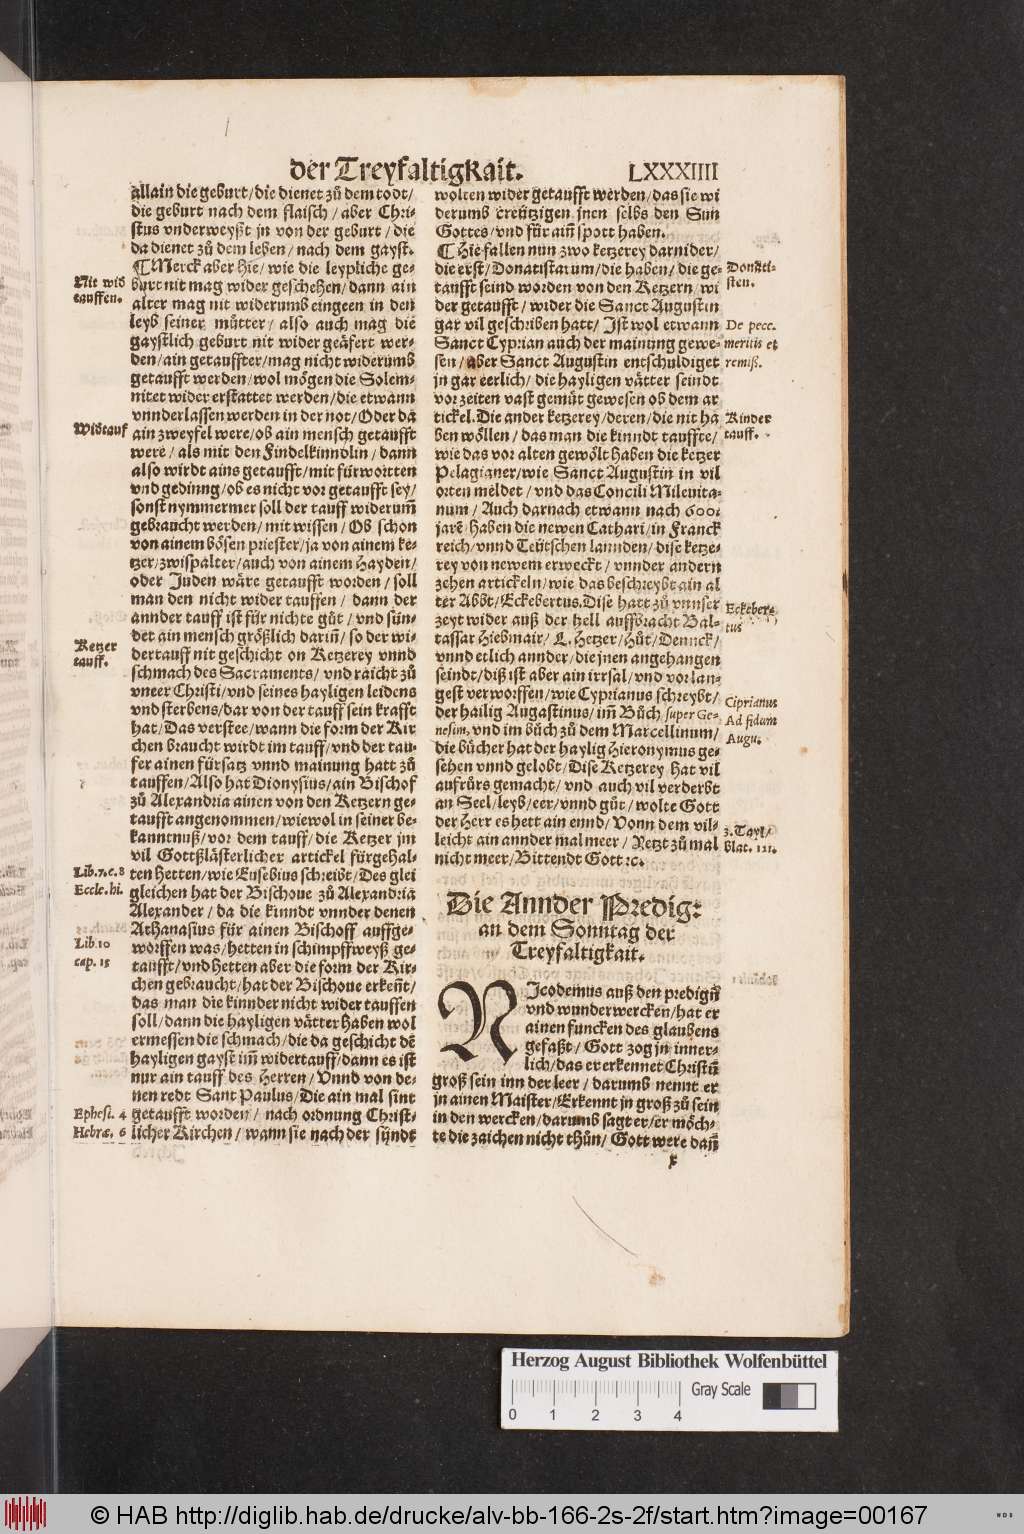 der Treyfaltigkait. LXXXIIII
allain die geburt/die dienet zů dem todt/
die geburt nach dem flaisch/aber Chri-
stus vnderweyßt jn von der geburt/die
da dienet zů dem leben/nach dem gayst.
¶ Merck aber hie/wie die leypliche ge-
burt nit mag wider geschehen/dann ain
alter mag nit widerumb eingeen in den
leyb seiner můtter/also auch mag die
gaystlich geburt nit wider geäfert wer-
den/ain getauffter/mag nicht widerumb
getaufft werden/wol mögen die Solem-
nitet wider erstattet werden/die etwann
vnnderlassen werden in der not/Oder da
ain zweyfel were/ob ain mensch getaufft
were/als mit den Findelkinndlin/dann
also wirdt ains getaufft/mit fürwortten
vnd gedinng/ob es nicht vor getaufft sey/
sonst nymmermer soll der tauff widerum̃
gebraucht werden/mit wissen/Ob schon
von ainem bösen priester/ja von ainem ke-
tzer/zwispalter/auch von ainem Hayden/
oder Juden wäre getaufft worden/soll
man den nicht wider tauffen/dann der
annder tauff ist für nichte gůt/vnd sün-
det ain mensch größlich darin̄/so der wi-
dertauff nit geschicht on Ketzerey vnnd
schmach des Sacraments/vnd raicht zů
vneer Christi/vnd seines hayligen leidens
vnd sterbens/dar von der tauff sein krafft
hat/Das verstee/wann die form der Kir
chen braucht wirdt im tauff/vnd der tau-
fer ainen fürsatz vnnd mainung hatt zů
tauffen/Also hat Dionysius/ain Bischof
zů Alexandria ainen von den Ketzern ge-
taufft angenommen/wiewol in seiner be-
kanntnuß/vor dem tauff/die Ketzer jm
vil Gottßlästerlicher artickel fürgehal-
ten hetten/wie Eusebius schreibt/Des glei
gleichen hat der Bischoue zů Alexandria
Alexander/da die kinndt vnnder denen
Athanasius für ainen Bischoff auffge-
worffen was/hetten in schimpffweyß ge-
taufft/vnd hetten aber die form der Kir-
chen gebraucht/hat der Bischoue erken̄t/
das man die kinnder nicht wider tauffen
soll/dann die hayligen vätter haben wol
ermessen die schmach/die da geschicht dē
hayligen gayst im̃ widertauff/dann es ist
nur ain tauff des Herren/Vnnd von de-
nen redt Sant Paulus/Die ain mal sint
getaufft worden/nach ordnung Christ-
licher Kirchen/wann sie nach der sŷndt
Nit wid
tauffen.
Widtauf
Ketzer
tauff.
Lib.7.c.8
Eccle.hi.
Lib.10
cap.15
Ephesi. 4
Hebræ, 6
wolten wider getaufft werden/das sie wi
derumb creützigen jnen selbs den Sun
Gottes/vnd für ain̄ spott haben.
¶ Hie fallen nun zwo ketzerey darnider/
die erst/Donatistarum/die haben/die ge-
taufft seind worden von den Ketzern/wi
der getaufft/wider die Sanct Augustin
gar vil geschriben hatt/Ist wol etwann
Sanct Cyprian auch der mainung gewe-
sen/aber Sanct Augustin entschuldiget
jn gar eerlich/die hayligen vätter seindt
vor zeiten vast gemüt gewesen ob dem ar
tickel. Die ander ketzerey/deren/die nit ha
ben wöllen/das man die kinndt tauffte/
wie das vor alten gewölt haben die ketzer
Pelagianer/wie Sanct Augustin in vil
orten meldet/vnd das Concili Mileuita-
num/Auch darnach etwann nach 600.
jarē/haben die newen Cathari/in Franck
reich/vnnd Teütschen lannden/dise ketze-
rey von newem erweckt/vnnder andern
zehen artickeln/wie das beschreybt ain al
ter Abbt/Eckebertus. Dise hatt zů vnnser
zeyt wider auß der hell auffbracht Bal-
tassar Hiebmair/L. Hetzer/Hůt/Dennck/
vnnd etlich annder/die jnen angehangen
seindt/diß ist aber ain irrsal/vnd vorlan-
gest verworffen/wie Cyprianus schreybt/
der hailig Augastinus/im̃ Bůch super Ge-
nesim, vnd im bůch zů dem Marcellinum/
die bücher hat der haylig Hieronymus ge-
sehen vnnd gelobt/Dise Ketzerey hat vil
aufrůrs gemacht/vnd auch vil verderbt
an Seel/leyb/eer/vnnd gůt/wolte Gott
der Herr es hett ain ennd/Vonn dem vil-
leicht ain annder mal meer/Yetzt zů mal
nicht meer/Bittendt Gott ꝛc.
Donati-
sten.
De pecc.
meritis et
remiß.
Kinder
tauff.
Eckeber-
tus
Ciprianus
Ad fidum
Augu.
3.Tayl/
blat. 121.
Die Annder Predig:
an dem Sonntag der
Treyfaltigkait.
NIcodemus auß den predign̄
vnd wunderwercken/hat er
ainen funcken des glaubens
gefaßt/Gott zog jn inner-
lich/das er erkennet Christū
groß sein inn der leer/darumb nennt er
jn ainen Maister/Erkennt jn groß zů sein
in den wercken/darumb sagt er/er möch-
te die zaichen nicht thůn/Gott were dan̄
x
Herzog August Bibliothek Wolfenbüttel
Gray Scale
0 1 2 3 4
© HAB http://diglib.hab.de/drucke/alv-bb-166-2s-2f/start.htm?image=00167